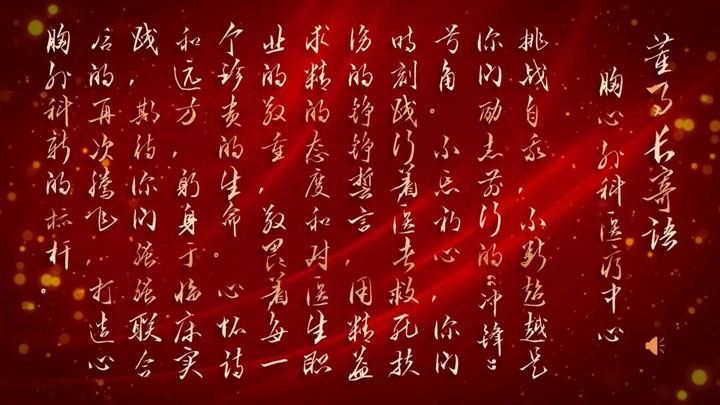 董事长寄语
胸心外科医疗中心
挑战自我，不断超越是
你们励志前行的“冲锋”
号角。不忘初心，你们
时刻践行着医者救死扶
伤的铮铮誓言，用精益
求精的态度和对医生职
业的敬重，敬畏着每一
个珍贵的生命。心怀诗
和远方，躬身于临床实
践，期待你们强强联合
后的再次腾飞，打造心
胸外科新的标杆。